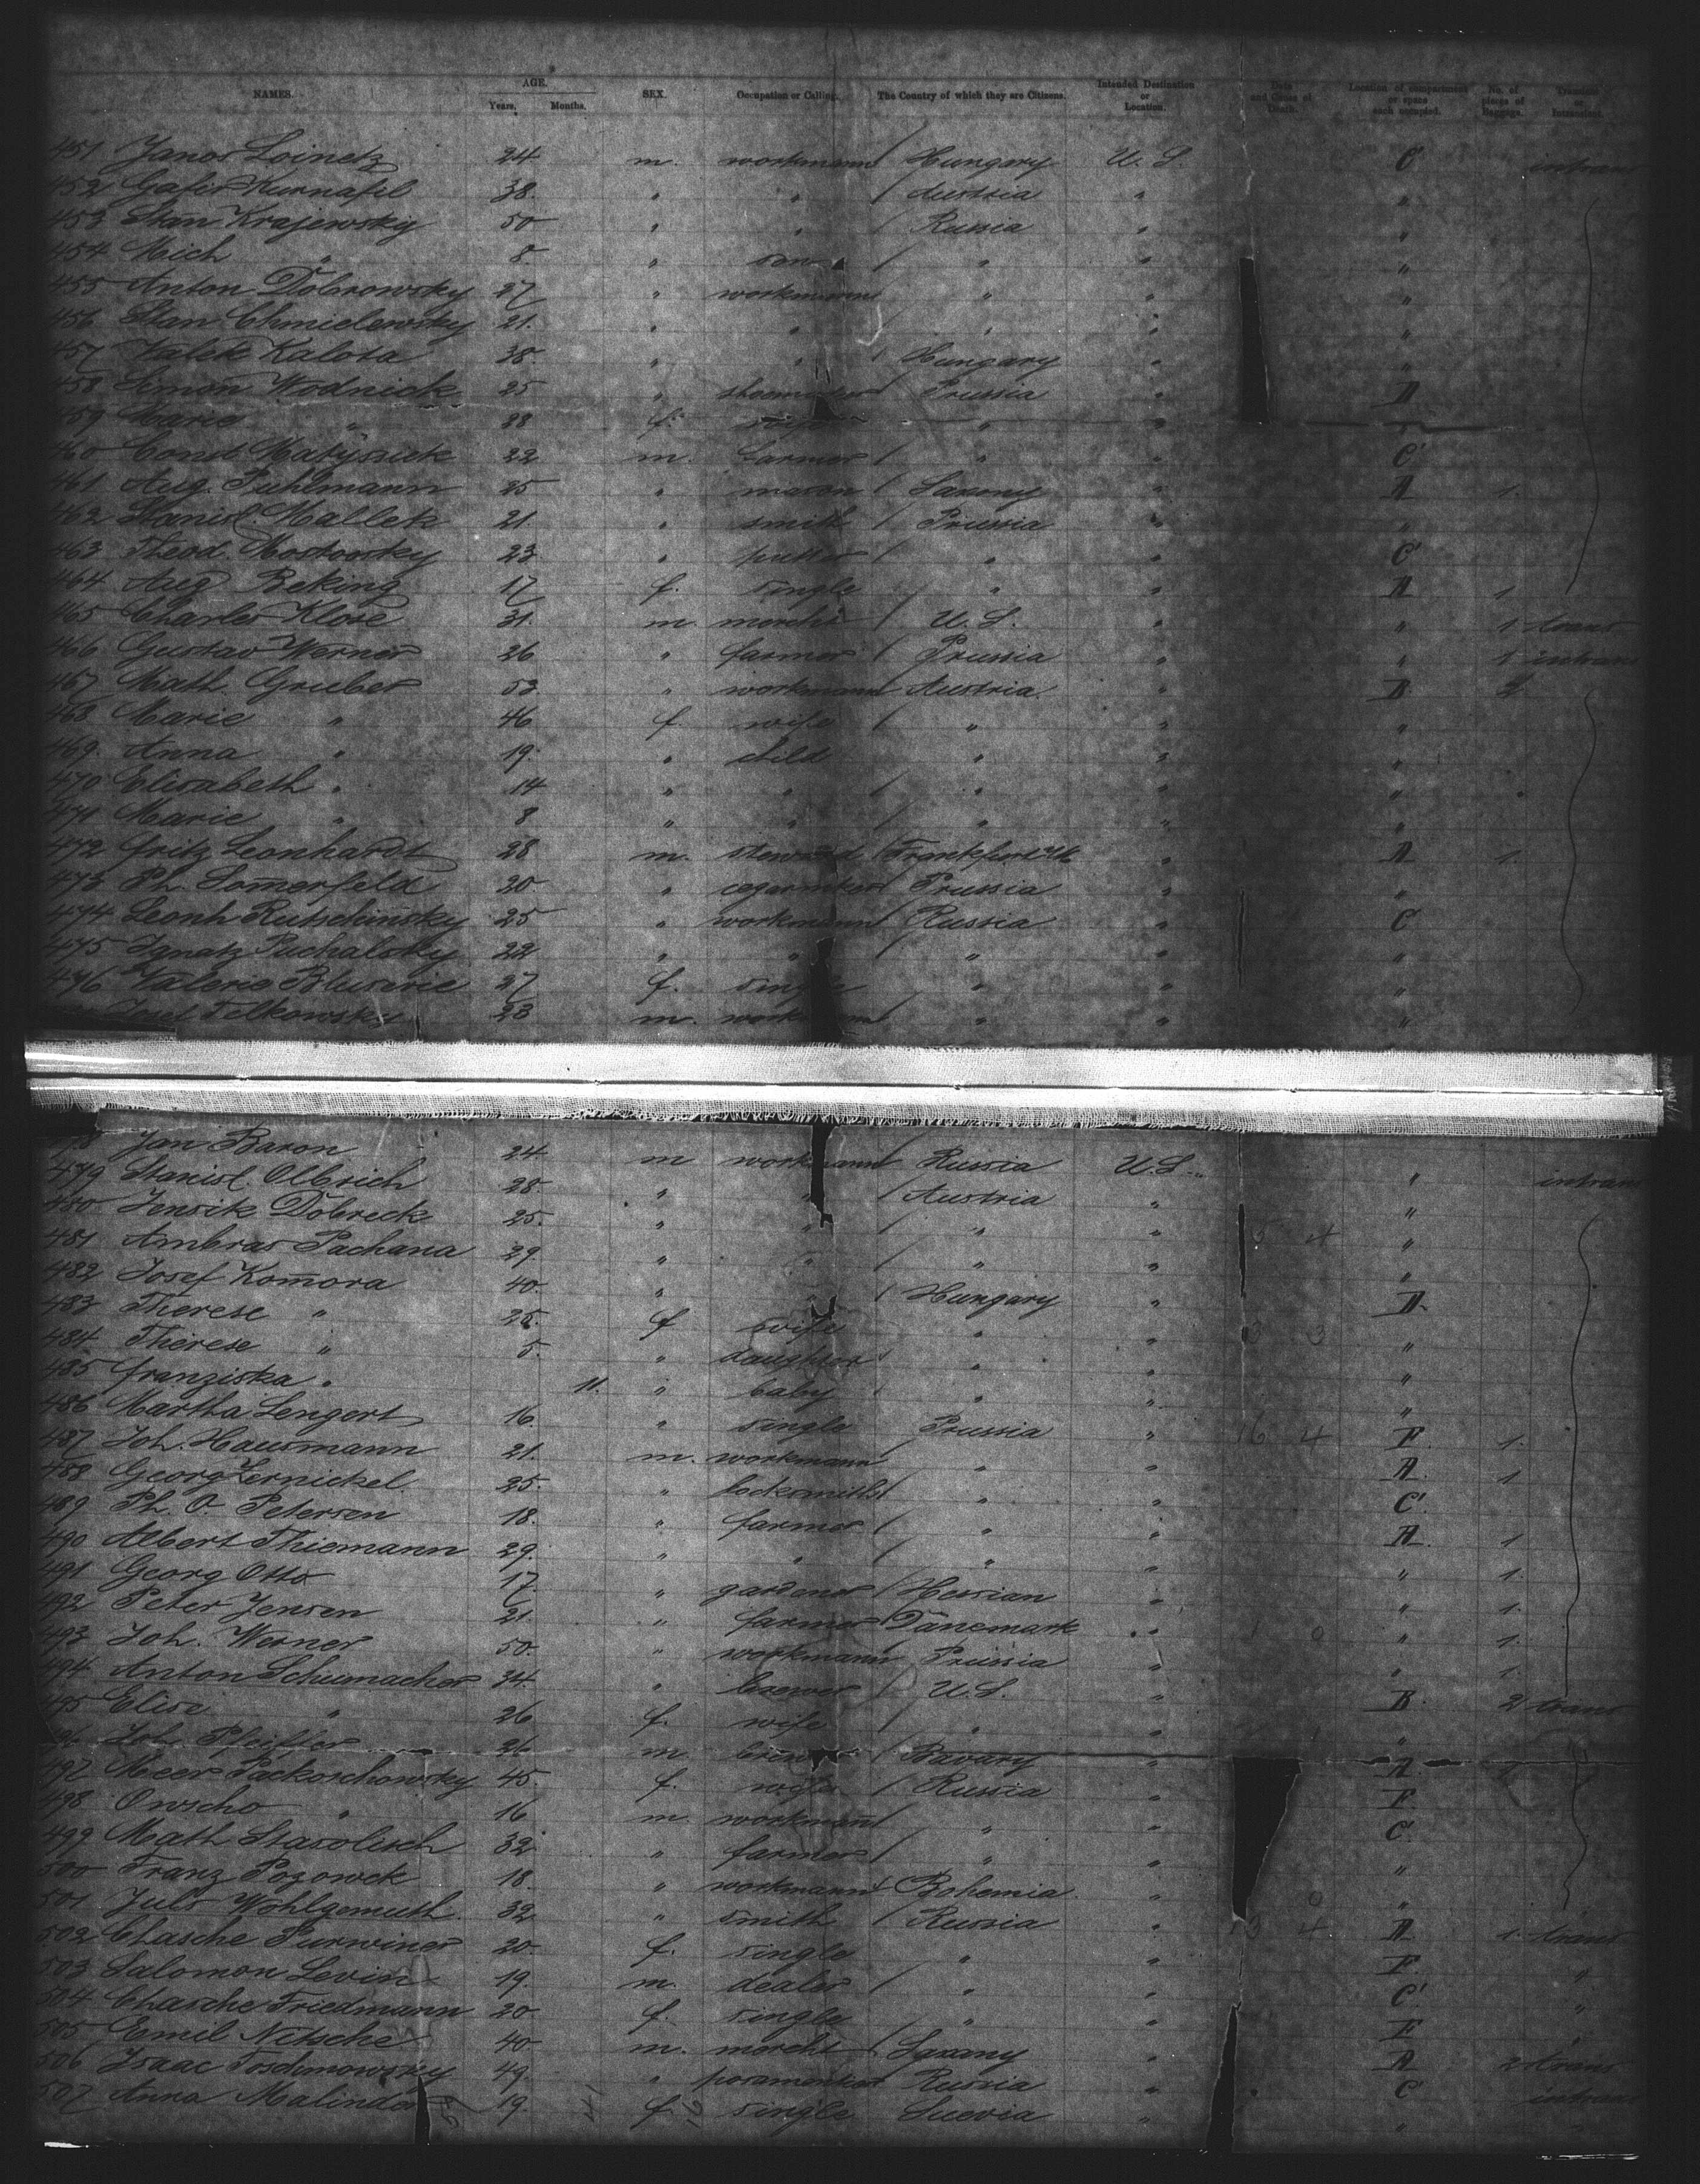 NAMES. AGE. Years. Months. SEX. Occupation or Calling. The Country of which they are Citizens. Intended Destination or Location. Date and Cause of Death. Location of compartment or space each occupied. No. of pieces of Baggage. Transient or Intransient.
451 Janos Loinetz 24 m. workmann Hungary U. S. C intrans
452 Gafir Kurnafil 38. " " Austria " "
453 Stan Krajewsky 50 " " Russia " "
454 Mich " 8. " son " " "
455 Anton Dobrowsky 27 " workmann " " "
456 Stan Chmielewsky 21. " " " " "
457 Valek Kalosa 38. " " Hungary " "
458 Simon Wodnick 25 " Prussia "
459 Marie " f. " "
460 Const Matysick 22 m. farmer " " C
461 Aug. Puhlmann 25 " mason Saxony " A 1.
462 Stanisl. Mallek 21 " smith Prussia " "
463 Theod. 23 " " " C
464 Aug Reking 17 f. single " " A 1
465 Charles Klose 31. m. morcht U. S. " " 1 trans
466 Gustav Werner 26 " farmer Prussia " " 1 intrans
467 Math. Gruber 53 " workmann Austria. " B
468 Marie " 46 f. wife " " "
469. Anna " 19. " child " " "
470 Elisabeth " 14 " " " " "
471 Marie " 8 " " " " "
472 Fritz Leonhardt 28 m. steward " A 1.
473 Ph. Somerfeld 20. " Prussia " "
474 Leonh Rutschinsky 25 " workmann Russia " C
475 Ignatz Puchalsky 22 " " " " "
476 Valerie 27 f. single " " "
Josef Felkowsky 23 m. " " "
Jan Baron 24 m workmann Russia U.S. " intrans
479 Stanisl. Olbrich 28. " " Austria " "
480 Jensik Dobreck 25. " " " " "
481 Ambras Pachana 29. " " " " "
482 Josef Komora 40. " " Hungary "
483 Therese " 25. f wife " " "
484. Therese " 5. " daughter " " "
485 Franziska " 11. " baby " " "
486 Martha Lengert 16. " single Prussia " F. 1.
487 Joh. Hausmann 21. m. workmann " " A. 1
488 Georg Zernickel 25. " locksmith " " C.
489 Ph. O. Petersen 18. " farmer " " A. 1
490 Albert Thiemann 29. " " " " " 1.
491 Georg Otto 17. " gardener Hessian " " 1.
492 Peter Jensen 21. " farmer Dänemark " " 1.
493 Joh. Werner 50. " workmann Prussia " " 1.
494 Anton Schumacher 34. " brewer U.S. " B. 2 trans
495 Elise " 26 f. wife " " "
496 Joh. Pfeiffer 26 m. Bavary "
497 Meer Packoschowsky 45. f. Russia " F.
498 Owscho " 16 m. workmann " " C.
499 Math Starolisch 32. " farmer " " "
500 Franz Pozowck 18. " workmann Bohemia " "
501 Juls Wohlgemuth 32 " smith Russia " A. 1. trans
502 Chasche Purwiner 20. f. single " " F. "
503 Salomon Levin 19. m. dealer " " C. "
504 Chasche Friedmann 20. f. single " " F. "
505 Emil Nitsche 40. m. morcht Saxony " A. 2 trans
506 Isaac Toschmowsky 49. " Russia " C intrans
507 Anna Malinder 19. f. single Suevia " "